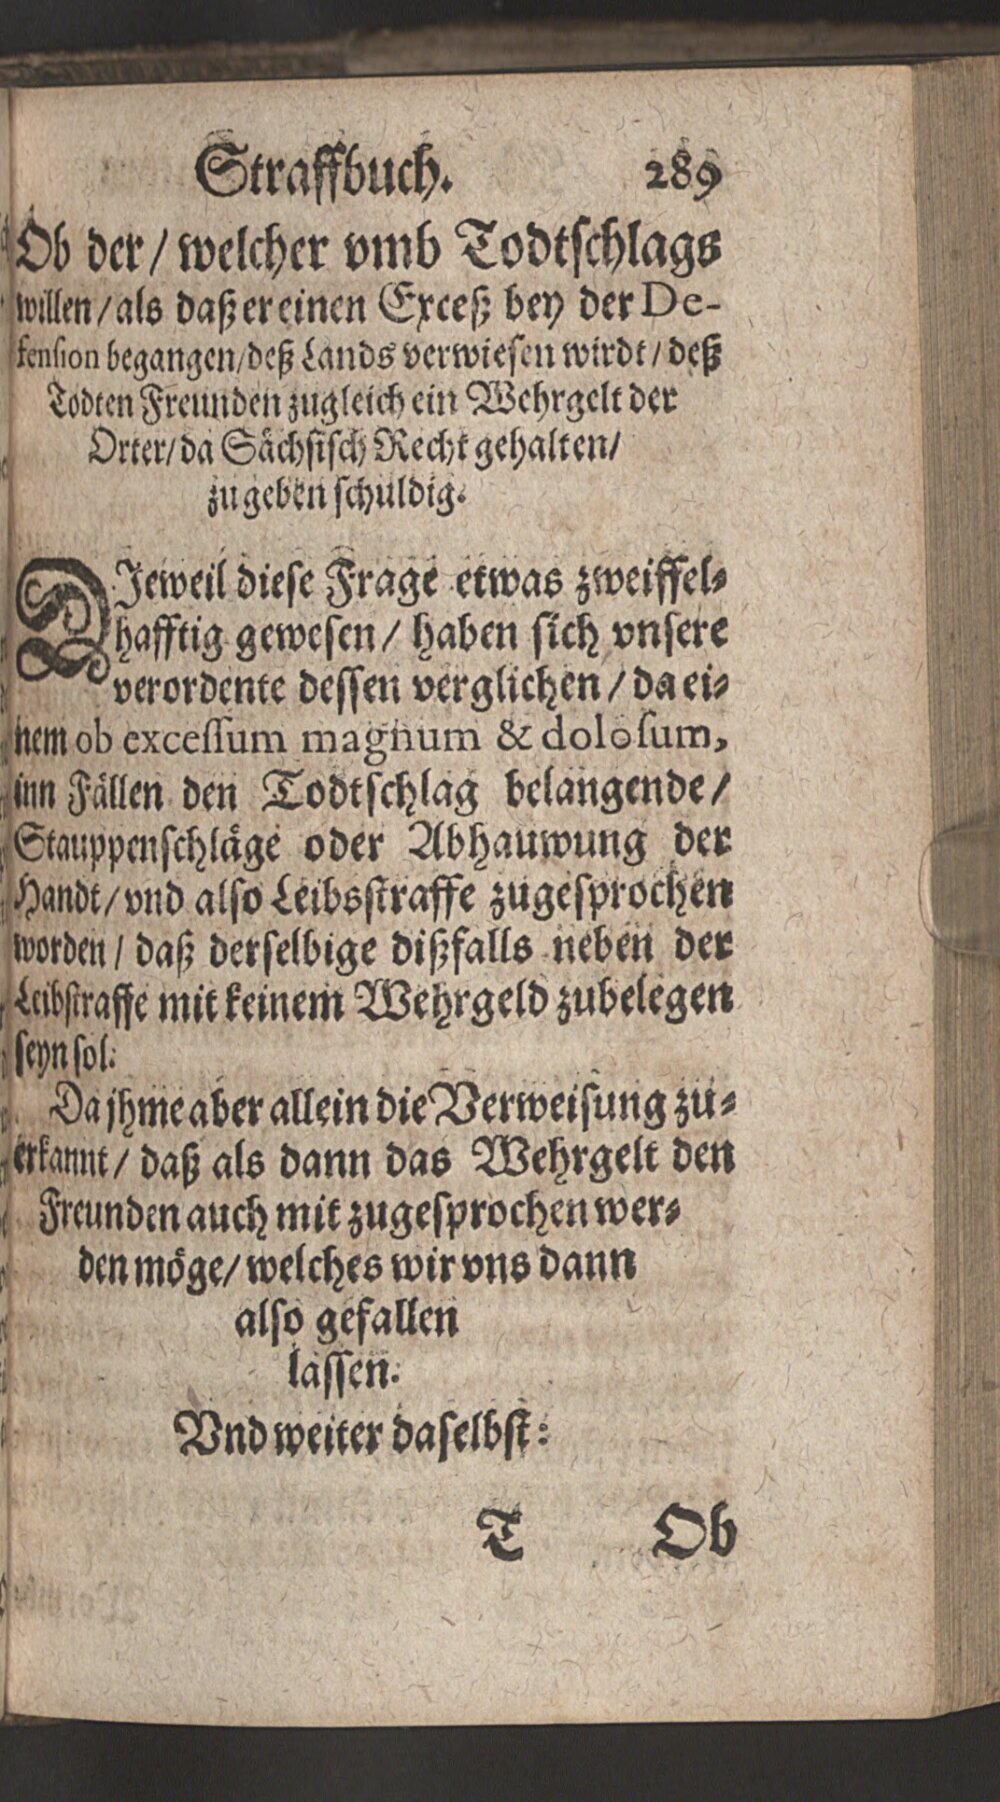 Straffbuch. 289
Ob der / welcher vmb Todtschlags
willen / als daß er einen Exceß bey der De-
fension begangen / deß Lands verwiesen wirdt / deß
Todten Freunden zugleich ein Wehrgelt der
Orter / da Sächsisch Recht gehalten /
zu geben schuldig.
DJeweil diese Frage etwas zweiffel-
hafftig gewesen / haben sich vnsere
verordente dessen verglichen / da ei-
nem ob excessum magnum & dolosum,
inn Fällen den Todtschlag belangende /
Stauppenschläge oder Abhauwung der
Handt / vnd also Leibsstraffe zugesprochen
worden / daß derselbige dißfalls neben der
Leibstraffe mit keinem Wehrgeld zubelegen
seyn sol.
Da jhme aber allein die Verweisung zu-
erkannt / daß als dann das Wehrgelt den
Freunden auch mit zugesprochen wer-
den möge / welches wir vns dann
also gefallen
lassen.
Vnd weiter daselbst:
T Ob